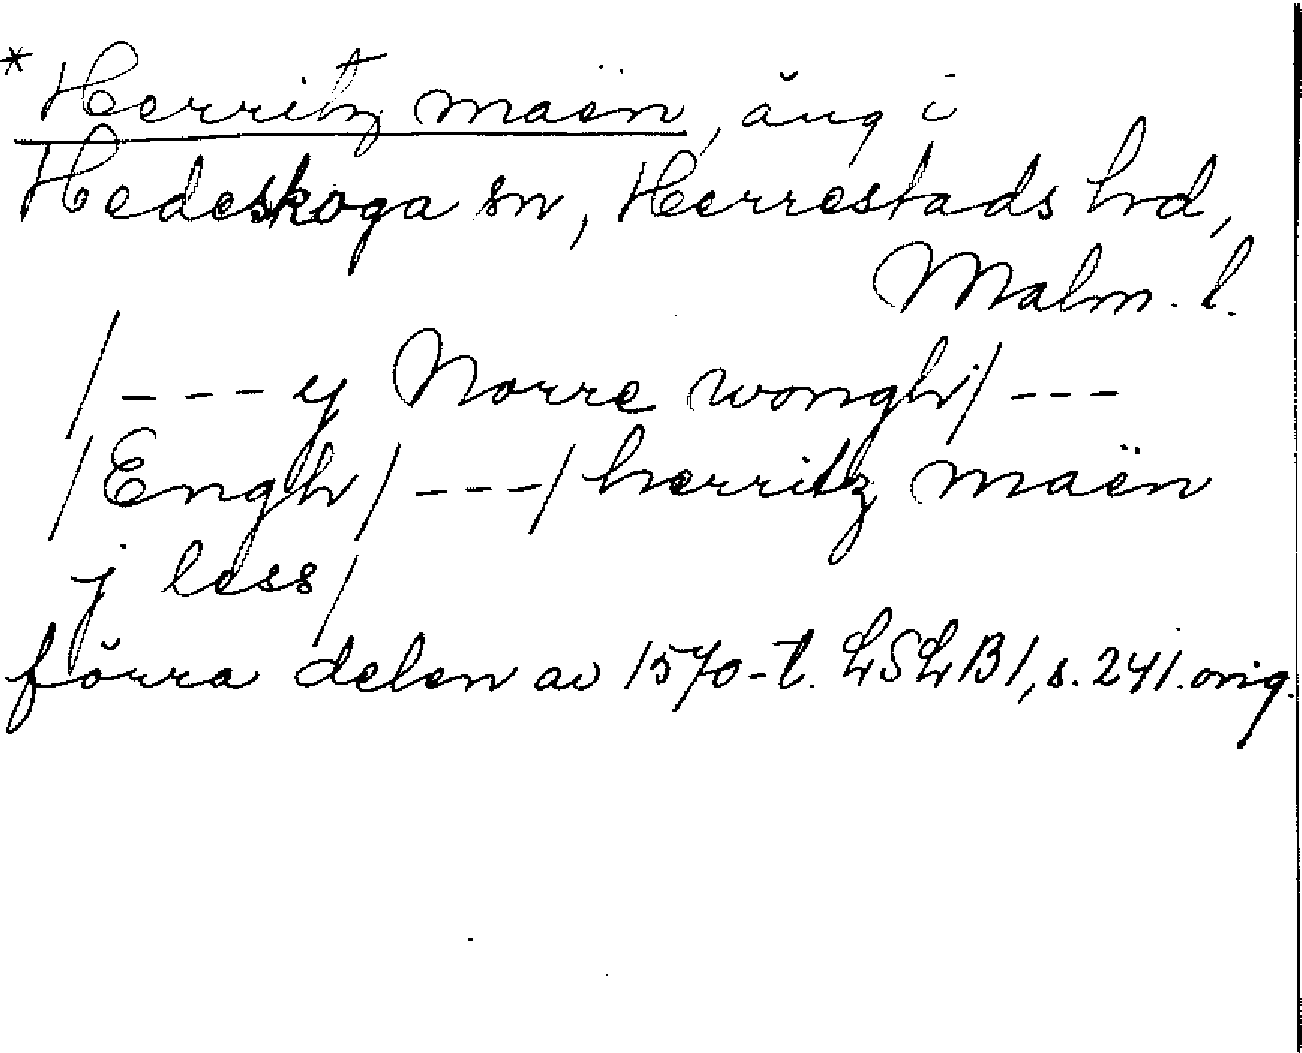 * Herritz maën, äng i
Hedeskoga sn, Herrestads hrd,
Malm. l.
/--- y Norre wongh/ ---
/Engh/ ---/ herritz maën
j less/
förra delen av 1570-t. LSLB1, s. 241. orig.